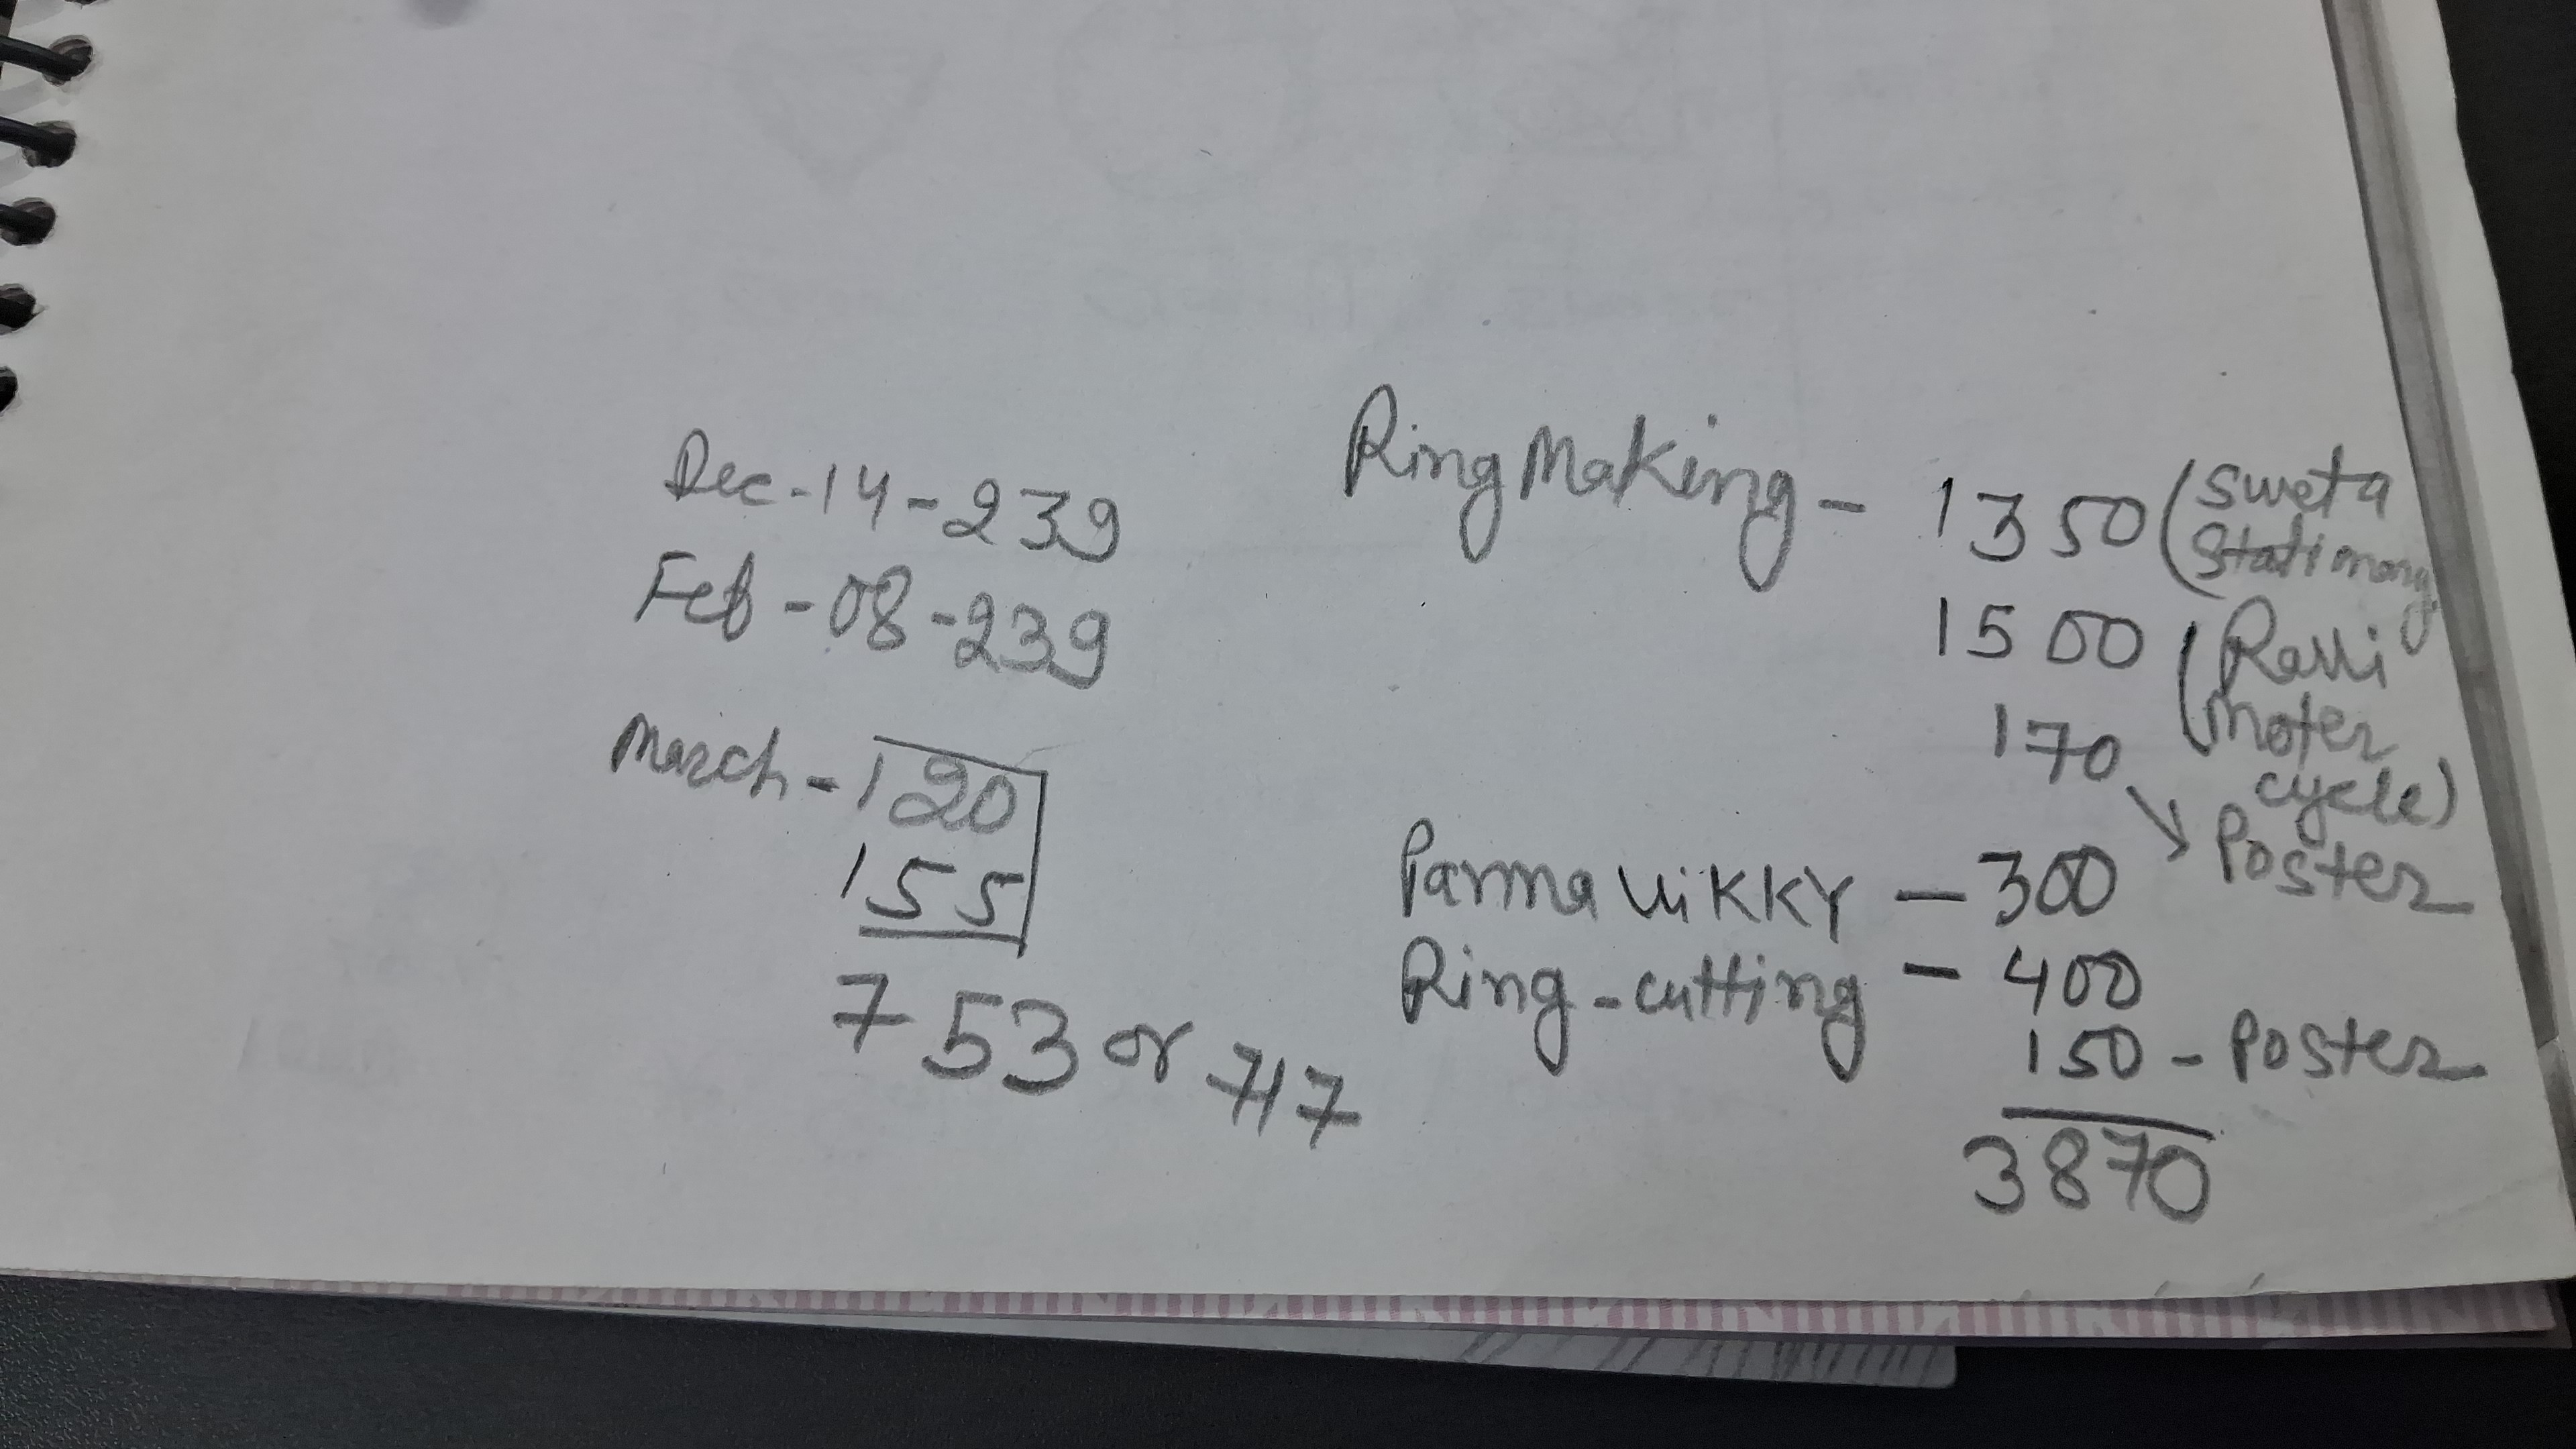 Dec - 14 - 239
Feb - 08 - 239
March - 120
155
753 or 747
Ring Making - 1350 (Sweta
Stationary
1500 (Ravi
170 (Moter
cycle)
Panna Vikky - 300 Poster
Ring - cutting - 400
150 - Poster
3870